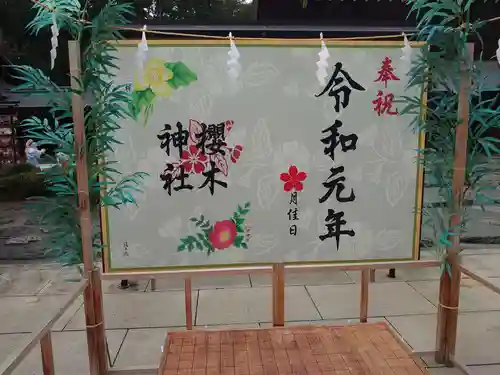 奉祝
令和元年
月佳日
櫻木
神社